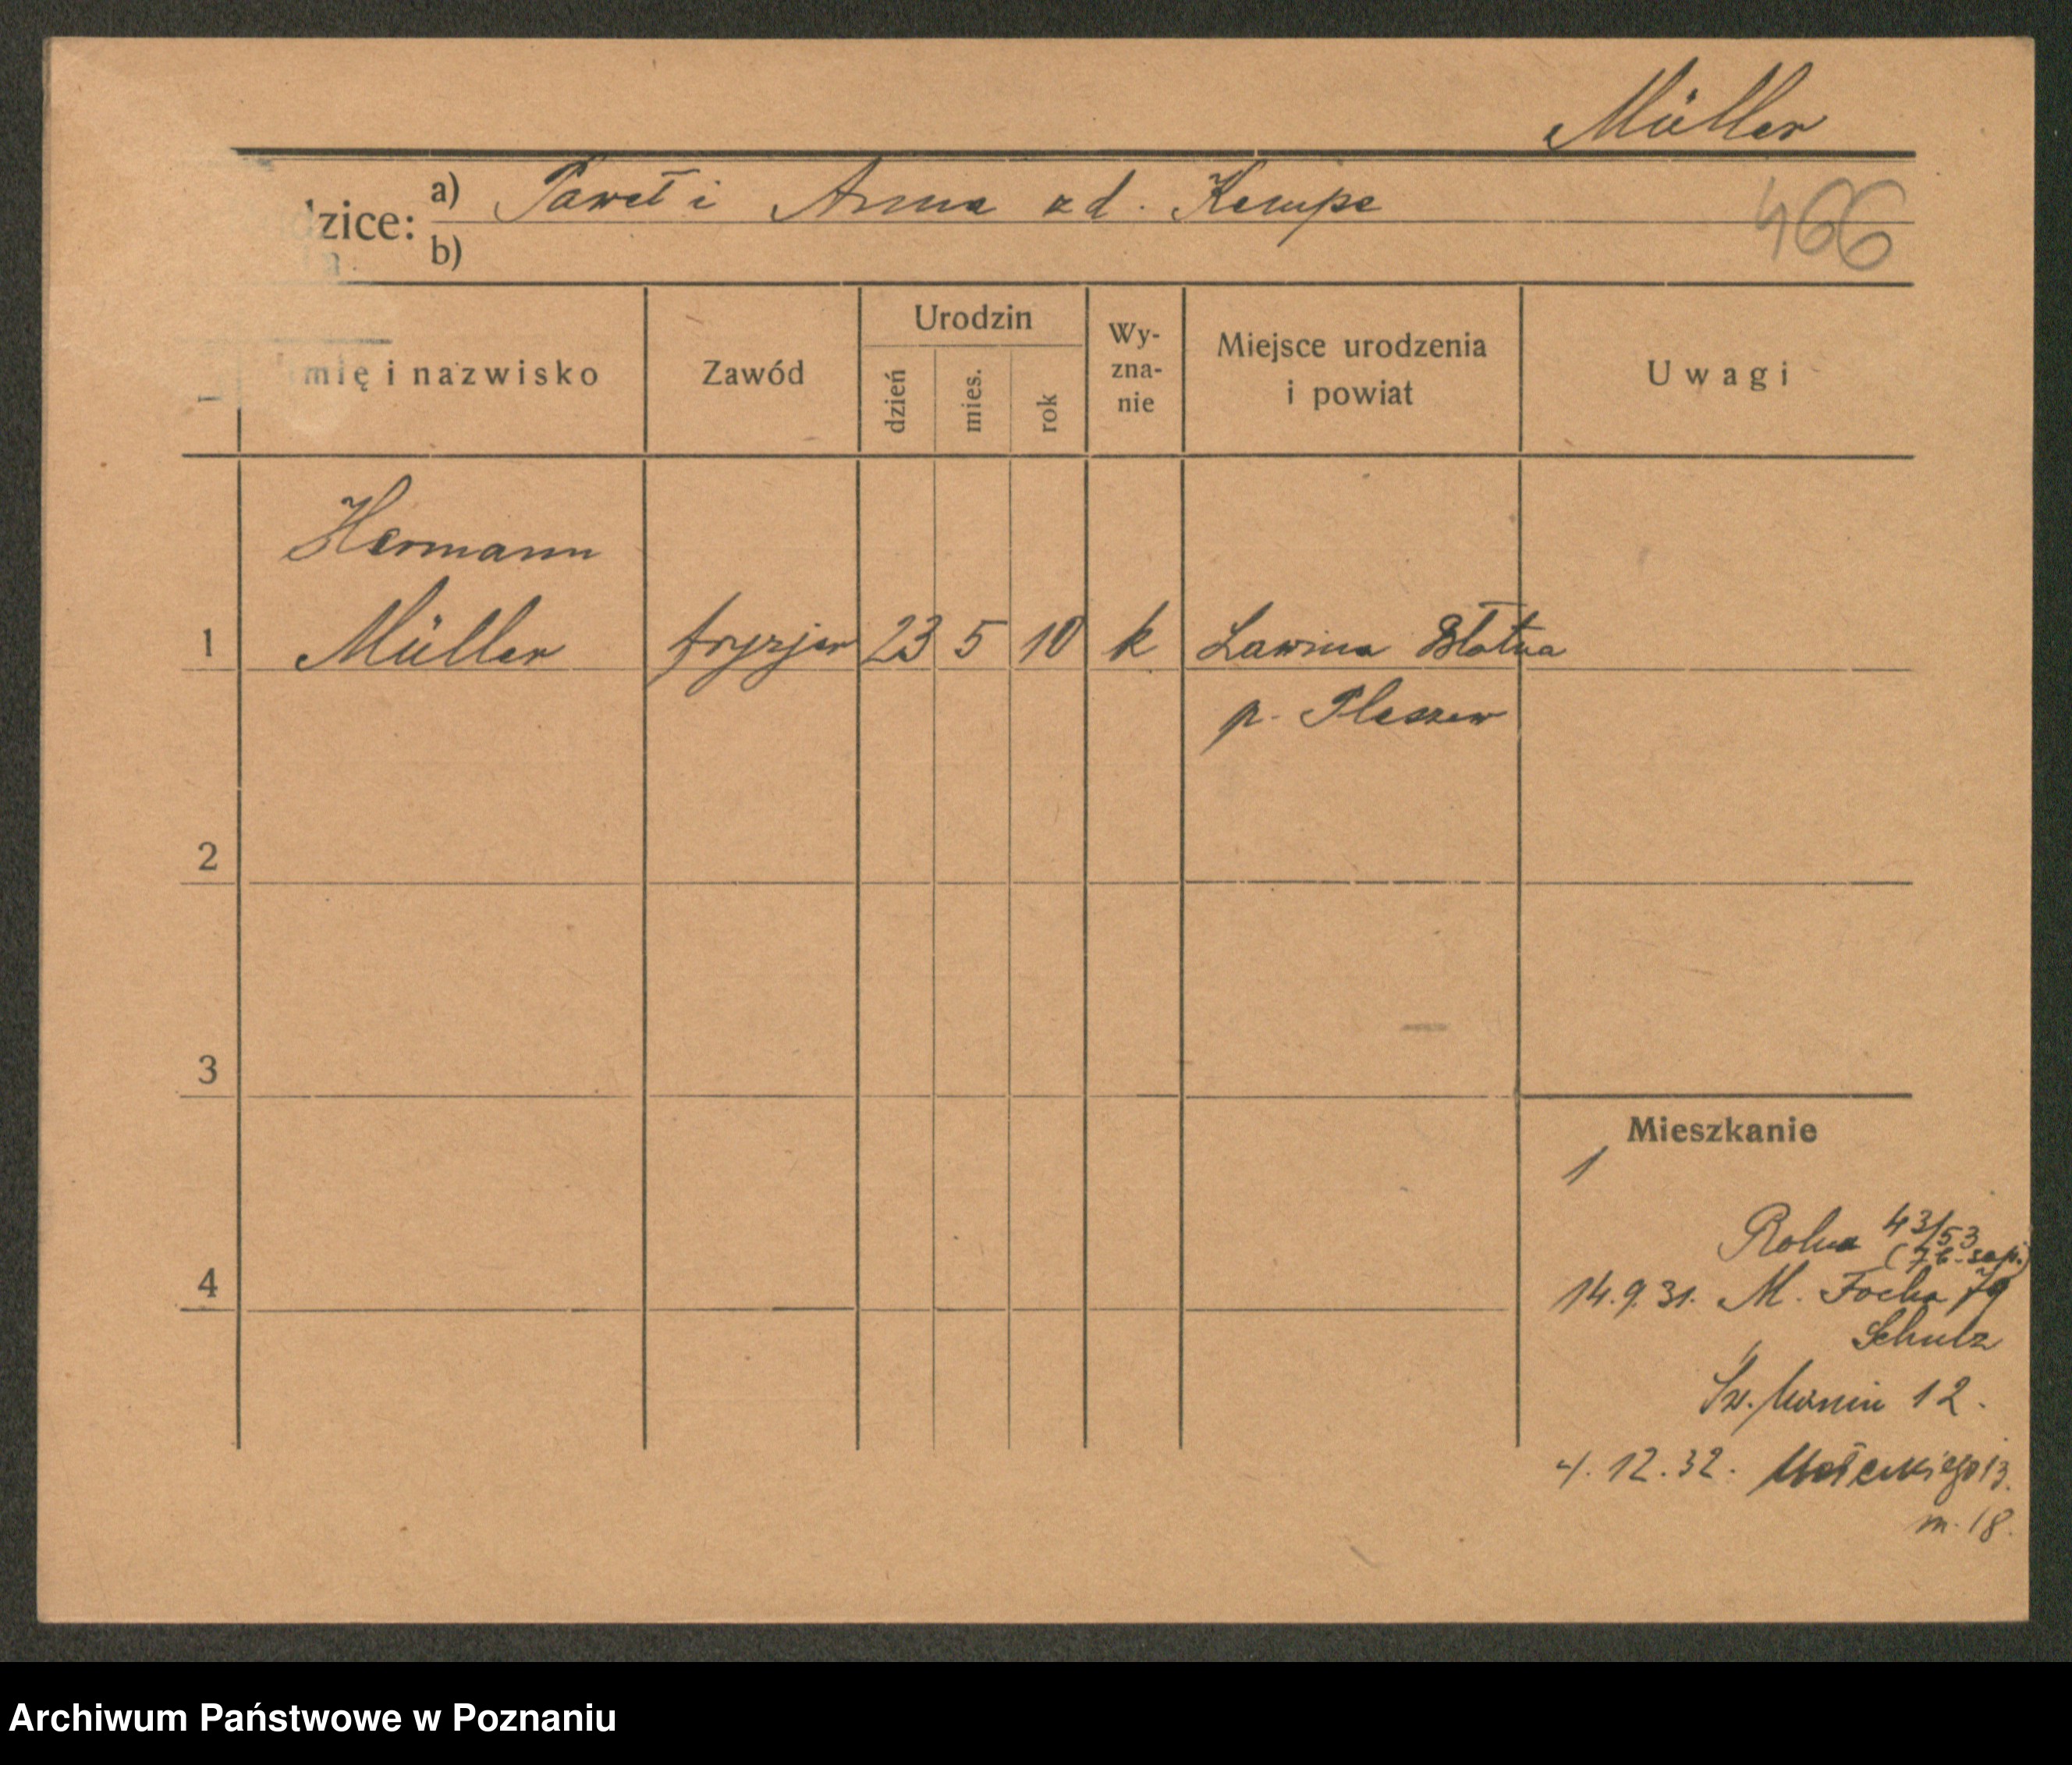 Müller
dzice: a) Paweł i Anna zd. Kempe
b)
466
mię i nazwisko
Zawód
Urodzin
dzień
mies.
rok
Wy-
zna-
nie
Miejsce urodzenia
i powiat
Uwagi
Hermann
1 Müller fryzjer 23 5 10 k Lawina Błotna
p. Pleszew
2
3
4
Mieszkanie
1
Rolna 43/53
14.9.31. M. Focha 79
Schulz
Św. Marcin 12.
4. 12. 32. 13.
m. 18.
Archiwum Państwowe w Poznaniu